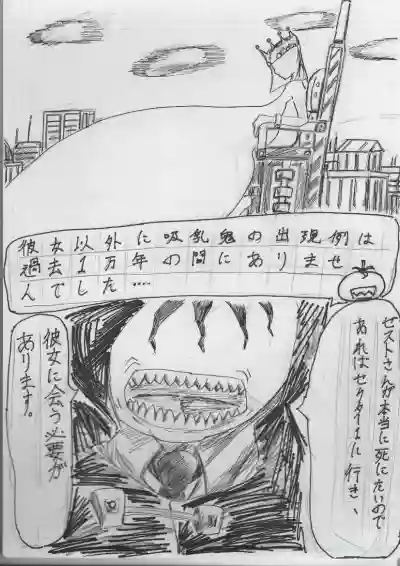 彼女以外に吸乳鬼の出現例は
過去1万年の間にありませ
んでした……
ゼストさんが本当に死にたいので
あればセクタイムに行き、
彼女に会う必要が
あります。